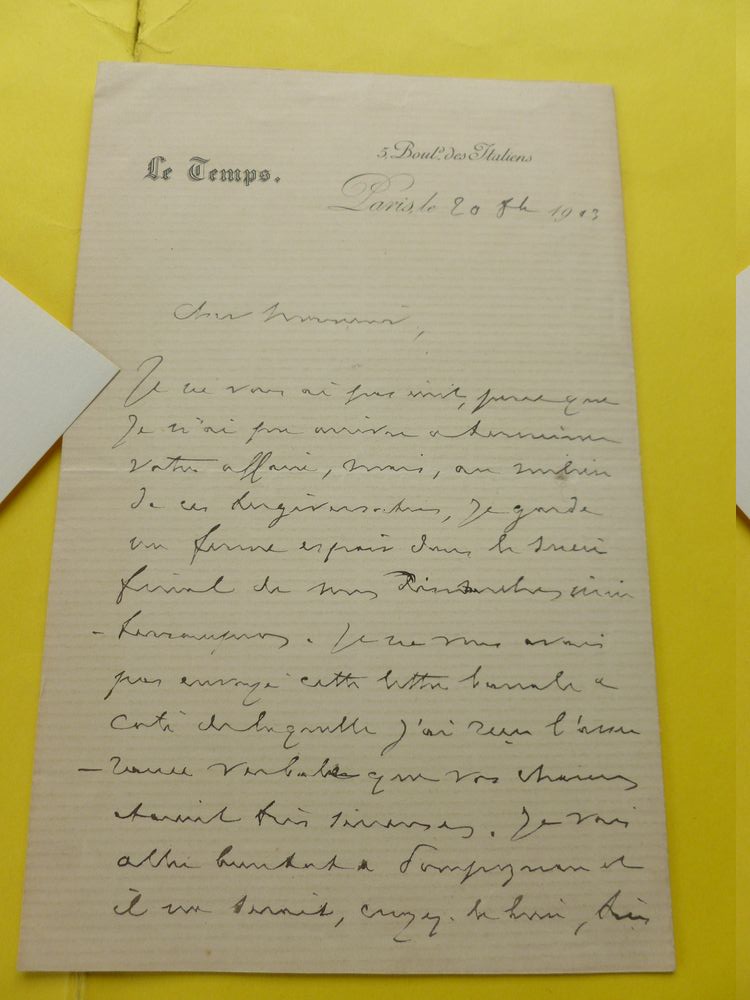 Le Temps.
5, Boul.d des Italiens
Paris, le 20 1913
Cher Monsieur,
Je ne vous ai pas écrit, parce que
Je n'ai pu arriver a terminer
votre affaire, mais, au milieu
de ces tergiversations, Je garde
un ferme espoir dans le succès
final de nos
Je ne vous avais
pas envoyé cette lettre banale a
coté de laquelle J'ai reçu l'assu
-rance verbale que vos chances
étaient très sérieuses. Je vais
aller bientot a Pompignan et
il me serait, croyez-le bien, très